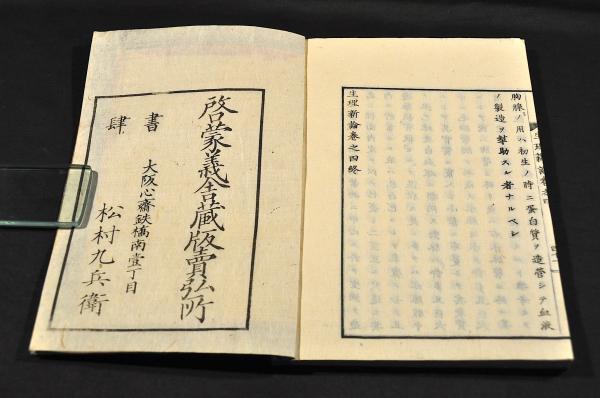 胸腺ノ用ハ初生ノ時ニ蛋白質ヲ造営シテ血液
ノ製造ヲ幇助スル者ナルベシ
生理新論巻之四終
啓蒙義舎蔵版賣弘所
大阪心齋鉄橋南壹丁目
書肆
松村九兵衛